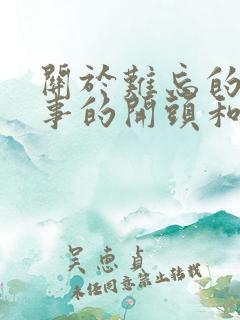 關於難忘的
事的開頭和
吴恵貞
未经同意禁止转载